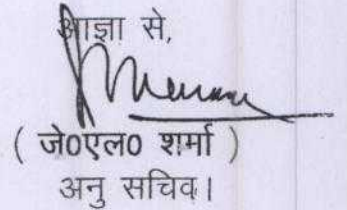 आज्ञा से,
( जे0एल0 शर्मा )
अनु सचिव।